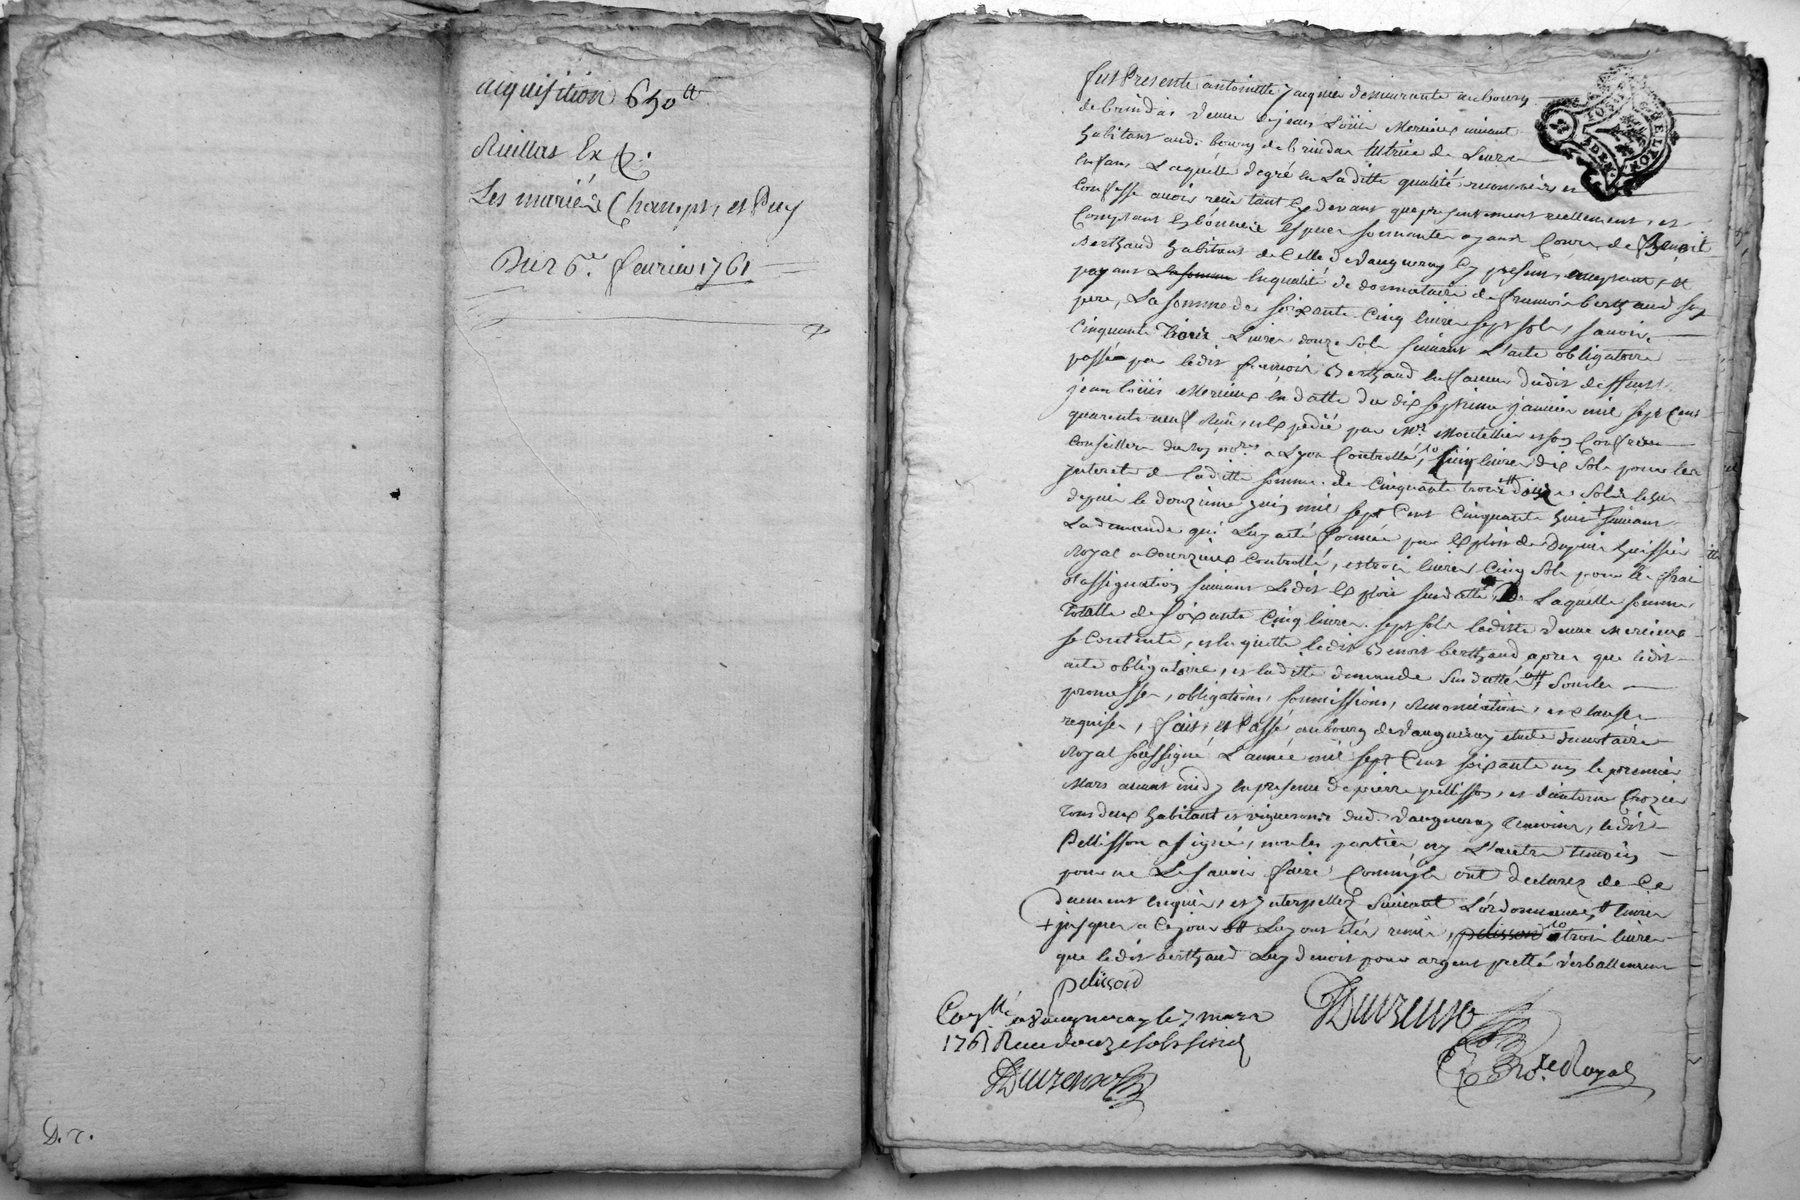 acquisition 650 tt
Les mariés Champt, et Puy
Du 6e. fevrier 1761
D. 7.
GE. DE LYON
fut Presente antoinette Jaquier demeurante au bourg
de brindas veuve de jean Loüis Merieux vivant
habitant aud. bourg de brindas tutrice de Leurs
enfans Laquelle degré en Laditte qualité reconnoit et
Confesse avoir reçu tant cy devant que presentement reellement, et
Comptant En bonnes Especes sonnantes ayant Cours, de Benoit
Berthaud habitant de Celle de Vaugneray Cy present, acceptant, et
payant La somme En qualité de donnataire de francois berthaud son
pere, La somme de soixante Cinq livres sept sols, savoir,
Cinquante trois Livres douze sols suivant L'acte obligatoire
passé par ledit francois Berthaud En faveur dudit deffunt
jean loüis Merieux En datte du dix septieme janvier mil sept Cent
quarente neuf Reçu, et Expedié par Me. Montellier et son Confrere
Conseillers du roy nores. a Lyon Controllé, huit livres dix sols pour les
jnterets de laditte somme de Cinquante trois tt douze sols Echus
depuis le douzieme juin mil sept Cent Cinquante huit + suivant
La demande qui Luy a été formée par Exploit de Dupuis huissier
Royal a Courzieux Controllé, et trois livres Cinq sols pour les frais
d'assignation suivant Ledit Exploit susdatté, De Laquelle somme
Totalle de soixante Cinq livres sept sols laditte veuve Merieux
se Contente, et En quitte ledit Benoit berthaud apres que ledit
acte obligatoire, et laditte demande susdatté Sous les
promesses, obligations, soumissions, renonciations, et clauses
requises, fait, et Passé au bourg de Vaugneray etude du notaire
Royal soussigné L'année mil sept Cent soixante un le premier
Mars avant midy En presence de pierre pellisson, et d'antoine Crozier
tous deux habitant et vignerons dud. Vaugneray temoins, ledit
Pellisson a signé, non les parties ny L'autre temoin
pour ne Le savoir faire Comm'ils ont declarez de Ce
duement Enquis, et jnterpellez suivant L'ordonnance,
+ jusques a Ce jour Luy ont été remis, pelisson trois livres
que ledit berthaud Luy devoit pour argent pretté verballement
pelisson
a Vaugneray le 7 mars
1761 Reçu douze sols six d
No.re Royal